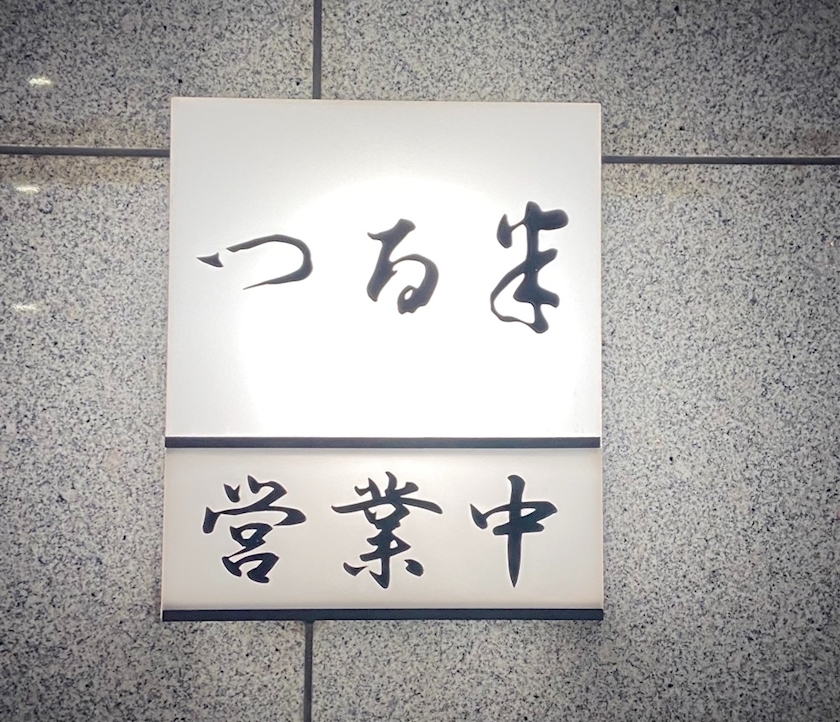 つる半
営業中